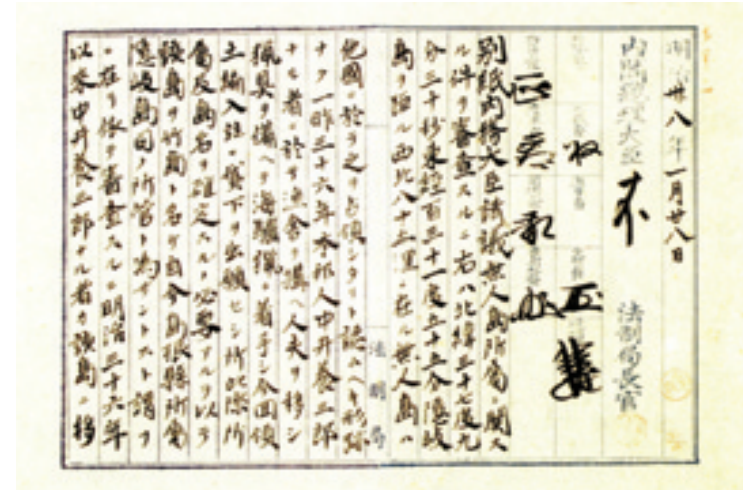 明治卅八年一月廿八日
内閣総理大臣
法制局長官
別紙内務大臣請議無人島所属ニ関ス
ル件ヲ審査スルニ右ハ北緯三十七度九
分三十秒東経百三十一度五十五分隠岐
島ヲ距ル西北八十五浬ニ在ル無人島ハ
他國ニ於テ之ヲ占領シタリト認ムヘキ形迹
ナク一昨三十六年本邦人中井養三郎
ナル者ニ於テ漁舎ヲ構ヘ人夫ヲ移シ
猟具ヲ備ヘテ海驢猟ニ着手シ今回領
土編入並ニ貸下ヲ出願セシ所此際所
属及島名ヲ確定スルノ必要アルヲ以テ
該島ヲ竹島ト名ケ自今島根縣所属
隠岐島司ノ所管ト為サントスト謂フ
ニ在リ依テ審査スルニ明治三十六年
以来中井養三郎ナル者カ該島ニ移